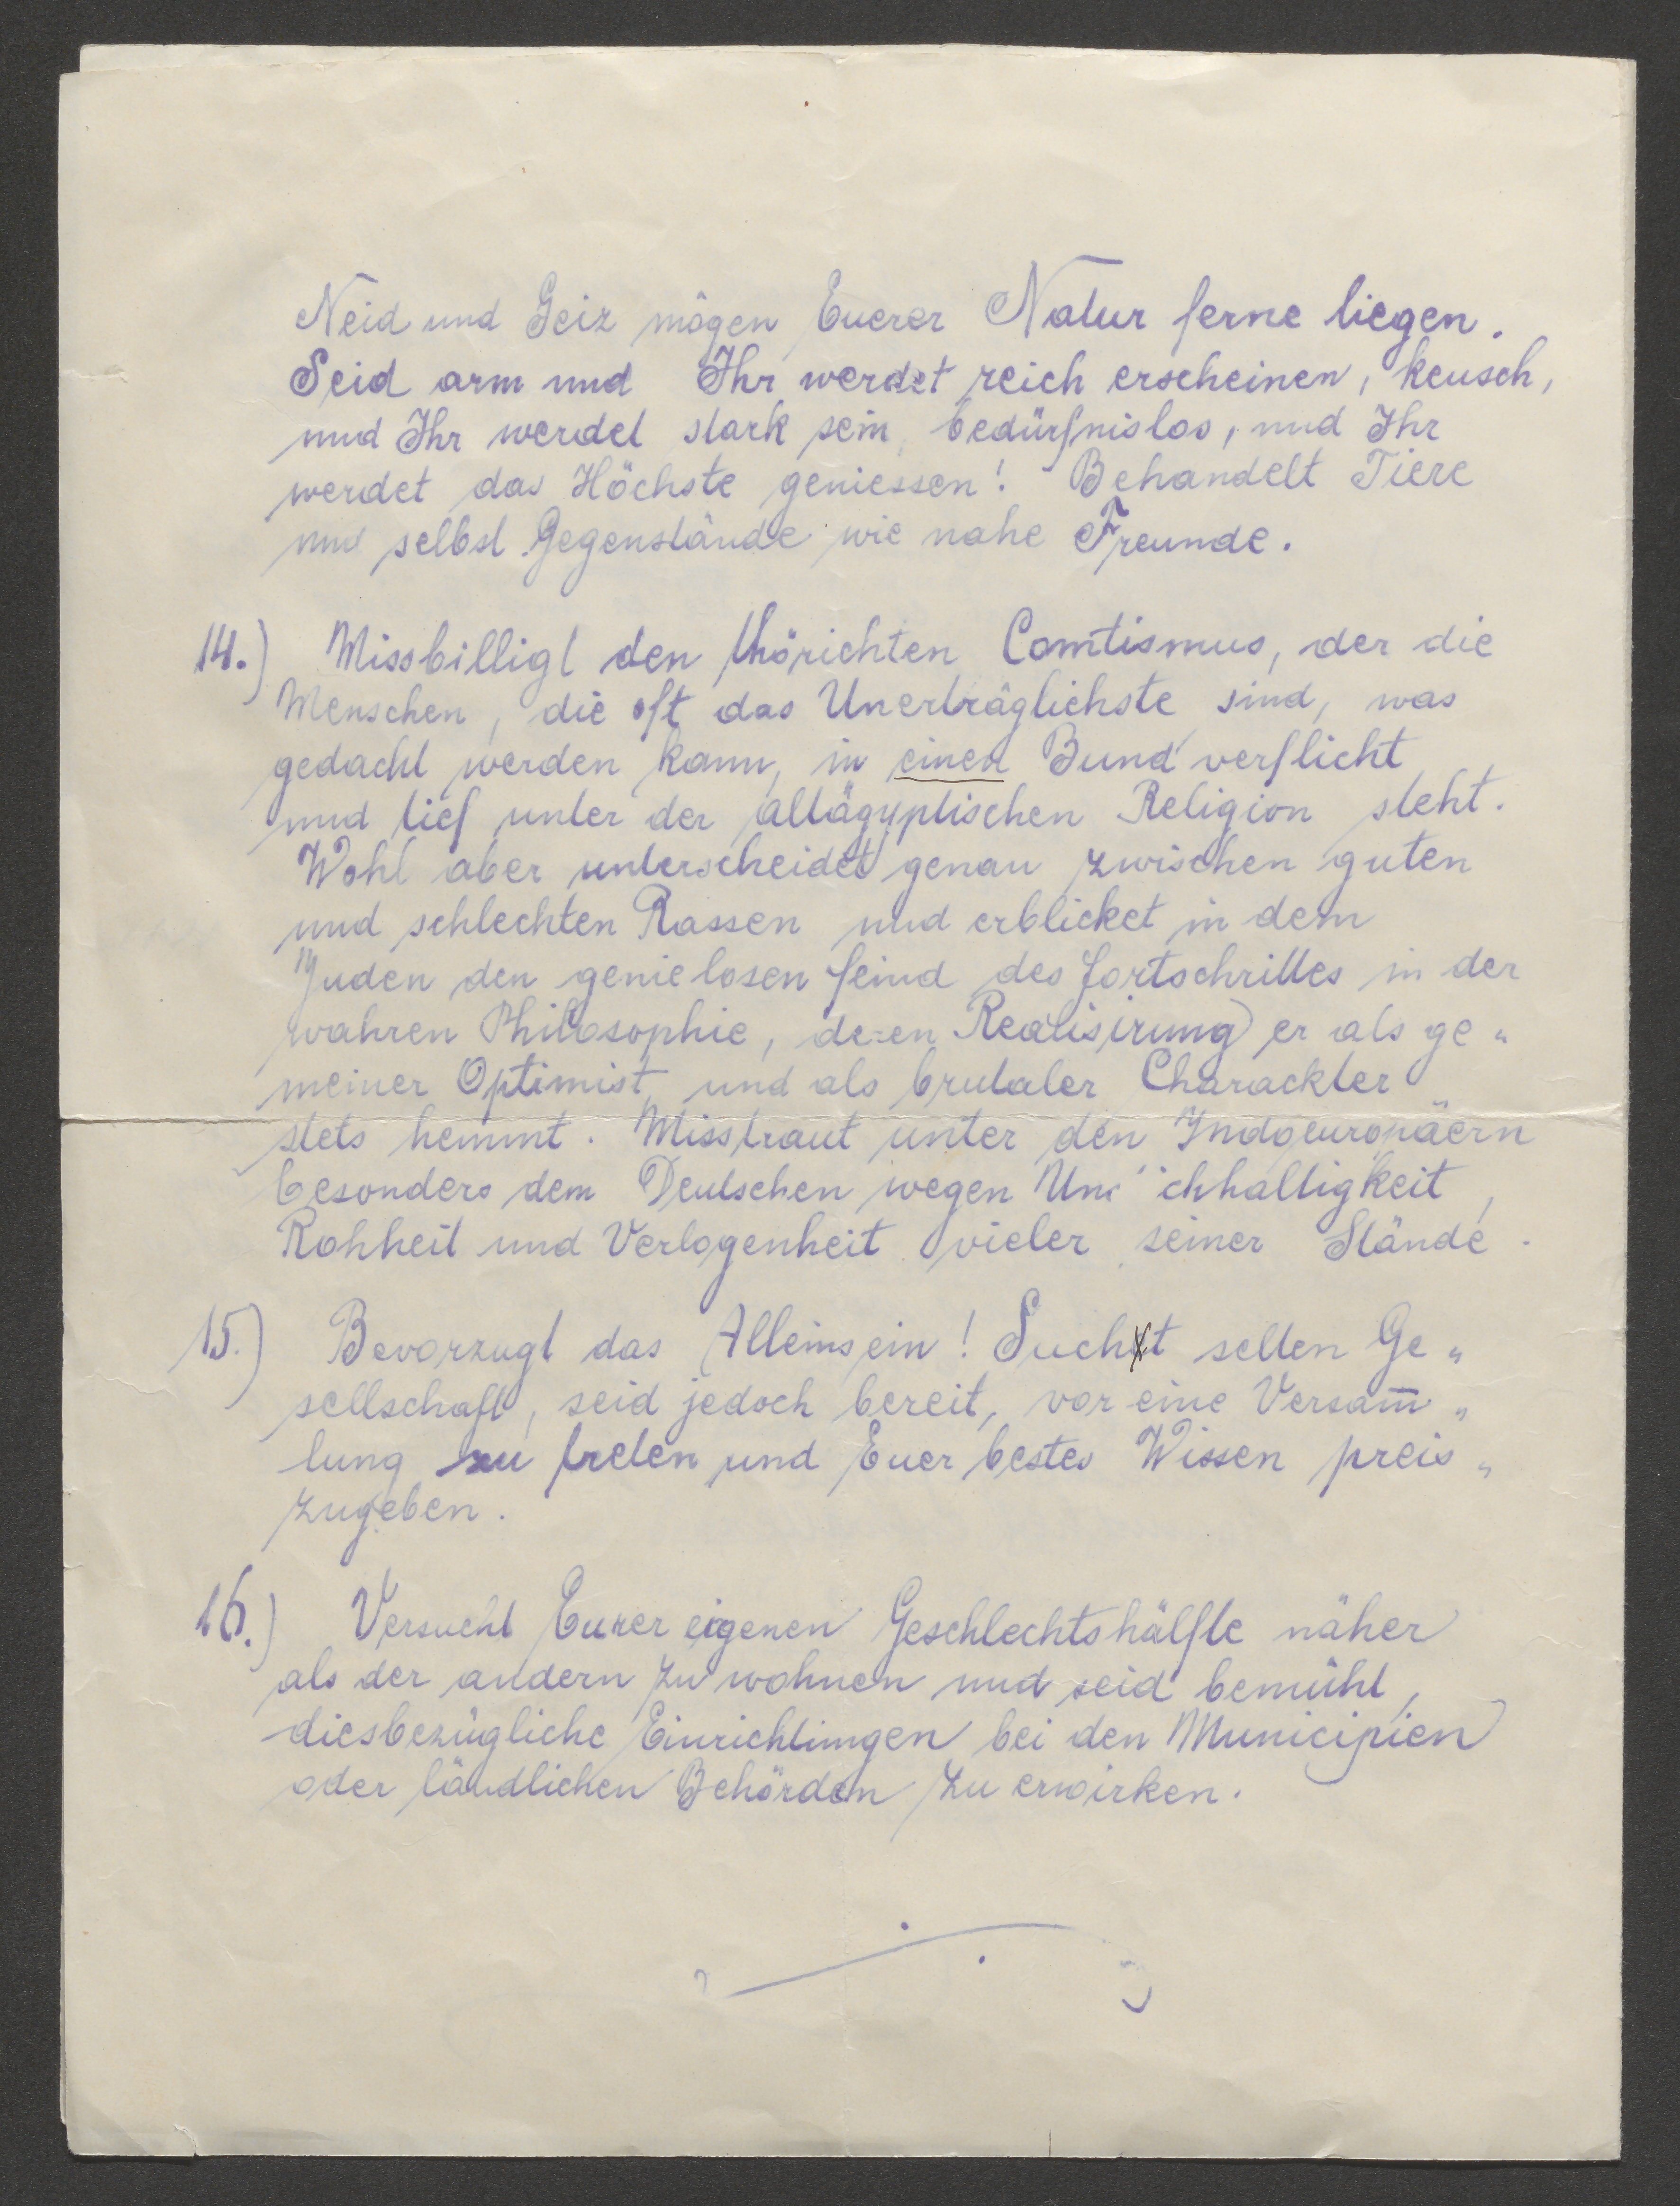 Neid und Geiz mögen Euerer Natur ferne liegen.
Seid arm und Ihr werdet reich erscheinen, keusch,
und Ihr werdet stark sein, bedürfnislos, und Ihr
werdet das Höchste geniessen! Behandelt Tiere
und selbst Gegenstände wie nahe Freunde.
14.) Missbilligt den thörichten Comtismus, der die
Menschen, die oft das Unerträglichste sind, was
gedacht werden kann, in einen Bund verflicht
und tief unter der altägyptischen Religion steht.
Wohl aber unterscheidet genau zwischen guten
und schlechten Rassen und erblicket in dem
Juden den genielosen Feind des Fortschrittes in der
wahren Philosophie, deren Realisirung er als ge„
meiner Optimist und als brutaler Charackter
stets hemmt. Misstraut unter den Indoeuropäern
besonders dem Deutschen wegen
Rohheit und Verlogenheit vieler seiner Stände.
15.) Bevorzugt das Alleinsein! Sucht selten Ge„
sellschaft, seid jedoch bereit, vor eine Versam̅„
lung zu treten und Euer bestes Wissen preis„
zugeben.
16.) Versucht Eurer eigenen Geschlechtshälfte näher
als der andern zu wohnen und seid bemüht,
diesbezügliche Einrichtungen bei den Municipien
oder ländlichen Behörden zu erwirken.